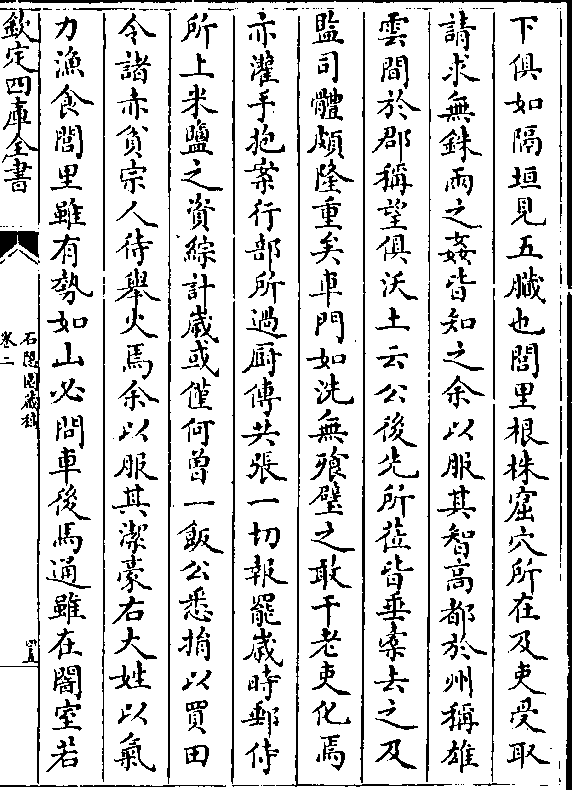 下俱如隔垣見五臟也閭里根株窟穴所在及吏受取
請求無銖兩之姦皆知之余以服其智高都於州稱雄
雲間於郡稱望俱沃土云公後先所蒞皆垂橐去之及
監司體頗隆重矣車門如洗無飱璧之敢干老吏化焉
亦灌手抱案行部所過厨傳共張一切報罷歲時郵侍
所上米鹽之資綜計歲或僅何曾一飯公悉捐以買田
令諸赤貧宗人待舉火焉余以服其潔豪右大姓以氣
力漁食閭里雖有勢如山必問車後馬通雖在闇室若
欽定四庫全書
石隱園藏稿
卷二